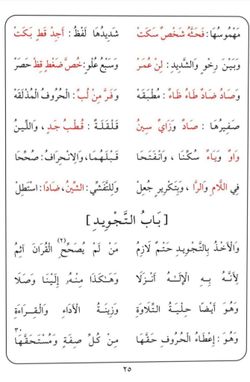 مَهْمُوسُهَا: فَحَثَّهُ شَخْصٌ سَكَتَ شَدِيدُهَا لَفْظُ: أَجِدُ قَطٍ بَكَتْ
وَبَيْنَ رِخْوٍ وَالشَّدِيدِ: لِنْ عُمَرْ وَسَبْعُ عُلْوٍ: خُصَّ ضَغْطٍ قِظْ حَصَرْ
وَصَادُ ضَادٌ طَاءُ ظَاءٌ: مُطْبَقَهْ وَفَرَّ مِنْ لُبِّ: الْحُرُوفُ الْمُذْلَقَهْ
صَفِيرُهَا: صَادٌ وَزَايٌ سِينُ قَلْقَلَةٌ: قُطْبُ جَدٍ، وَاللِّينُ
وَاوٌ وَيَاءٌ سُكِّنَا، وَانْفَتَحَا قَبْلَهُمَا، وَالِانْحِرَافُ: صُحِّحَا
فِي اللَّامِ وَالرَّا، وَبِتَكْرِيرٍ جُعِلْ وَلِلتَّفَشِّي: الشِّينُ، ضَادًا: اسْتَطِلْ
[ بَابُ التَّجْوِيدِ ]
وَالْأَخْذُ بِالتَّجْوِيدِ حَتْمٌ لَازِمُ مَنْ لَمْ يُصَحِّحِ (٢) الْقُرَانَ آثِمُ
لِأَنَّهُ بِهِ الْإِلَـٰهُ أَنْزَلَا وَهَكَذَا مِنْهُ إِلَيْنَا وَصَلَا
وَهُوَ أَيْضًا حِلْيَةُ التِّلَاوَةِ وَزِينَةُ الْأَدَاءِ وَالْقِرَاءَةِ
وَهُوَ: إِعْطَاءُ الْحُرُوفِ حَقَّهَا مِنْ كُلِّ صِفَةٍ وَمُسْتَحَقَّهَا
٢٥